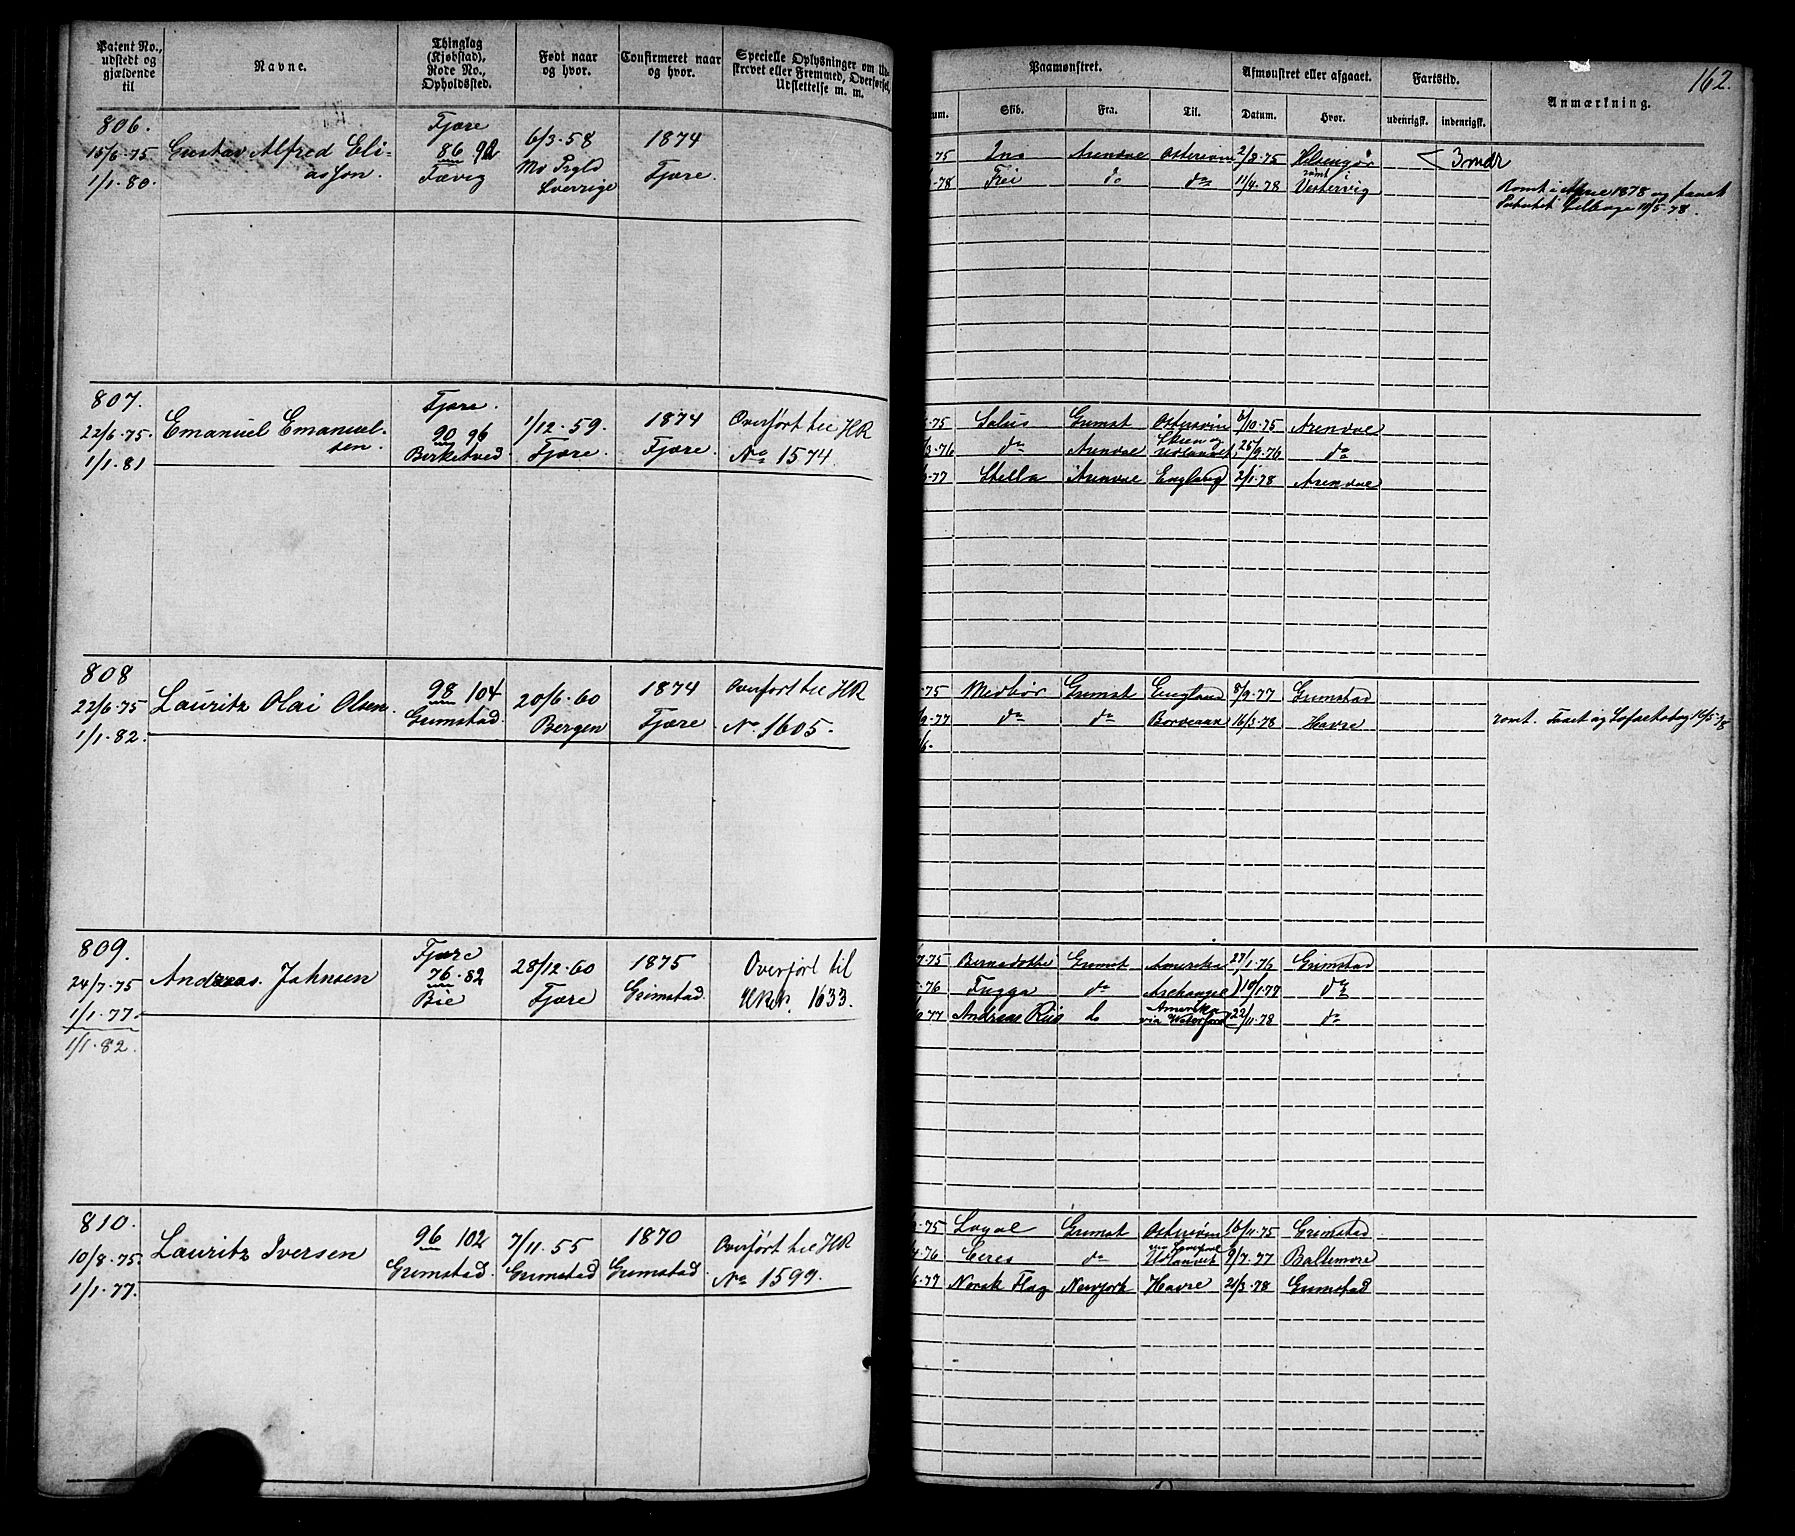 162.
Patent No., udstedt og gjældende til
Navne.
Thinglag (Kjøbstad), Rode No., Opholdssted.
Født naar og hvor.
Confirmeret naar og hvor.
Specielle Oplysninger om Ud-
skrevet eller Fremmed, Overførsel,
Udslettelse m. m.
Paamønstret.
Afmønstret eller afgaaet.
Fartstid.
Anmærkning.
Skib.
Fra.
Til.
Datum.
Hvor.
udenrigsk.
indenrigsk.
806.
15/6-75
1/1-80.
Gustav Alfred Eli-
asson.
Fjære
86 92
Fævig
6/3-58
Sverrige
1874
Fjære.
75 Ino Arendal Østersøen 2/9-75 Helsingør 3 mdr
78 Frei do do 11/4-78 rømt Vestervig
807.
22/6-75.
1/1-81
Emanuel Emanuel-
sen.
Fjære.
90 96
Birketved
1/12-59.
Fjære.
1874
Fjære.
Overført til HR
No 1574.
75 Salus Grimst Østersøen 6/10-75 Arendal
3-76 do Arendal Skien og Udlandet 25/9-76 do
77 Stella Arendal England 2/1-78 Arendal
808
22/6-75
1/1-82.
Lauritz Olai Olsen.
98 104
Grimstad.
20/6-60
Bergen
1874
Fjære
Overført til HR
No 1605.
75 Medbør Grimst England 8/9-77 Grimstad
77 do do Bordeaux 16/3-78 Havre
809.
24/7-75
1/1-77.
1/1-82.
Andreas Jahnsen
Fjære
76-82
Bie
28/12-60
Fjære
1875
Grimstad.
Overført til
HR No. 1633.
7-75 Bernadotte Grimst Amerika 27/1-76 Grimstad
76 Frigga do Archangel 10/1-77 do
77 Andreas Riis do Amerika via Waterford 22/11-78 do
810.
10/8-75.
1/1-77.
Lauritz Iversen
96 102
Grimstad.
7/11-55
Grimstad
1870
Grimstad.
Overført til HR
No 1599.
75 Loyal Grimst Østersøen 16/11-75 Grimstad
4-76 Ceres do Udlandet 9/7-77 Baltimore
77 Norsk Flag Newyork Havre 21/3-78 Grimstad